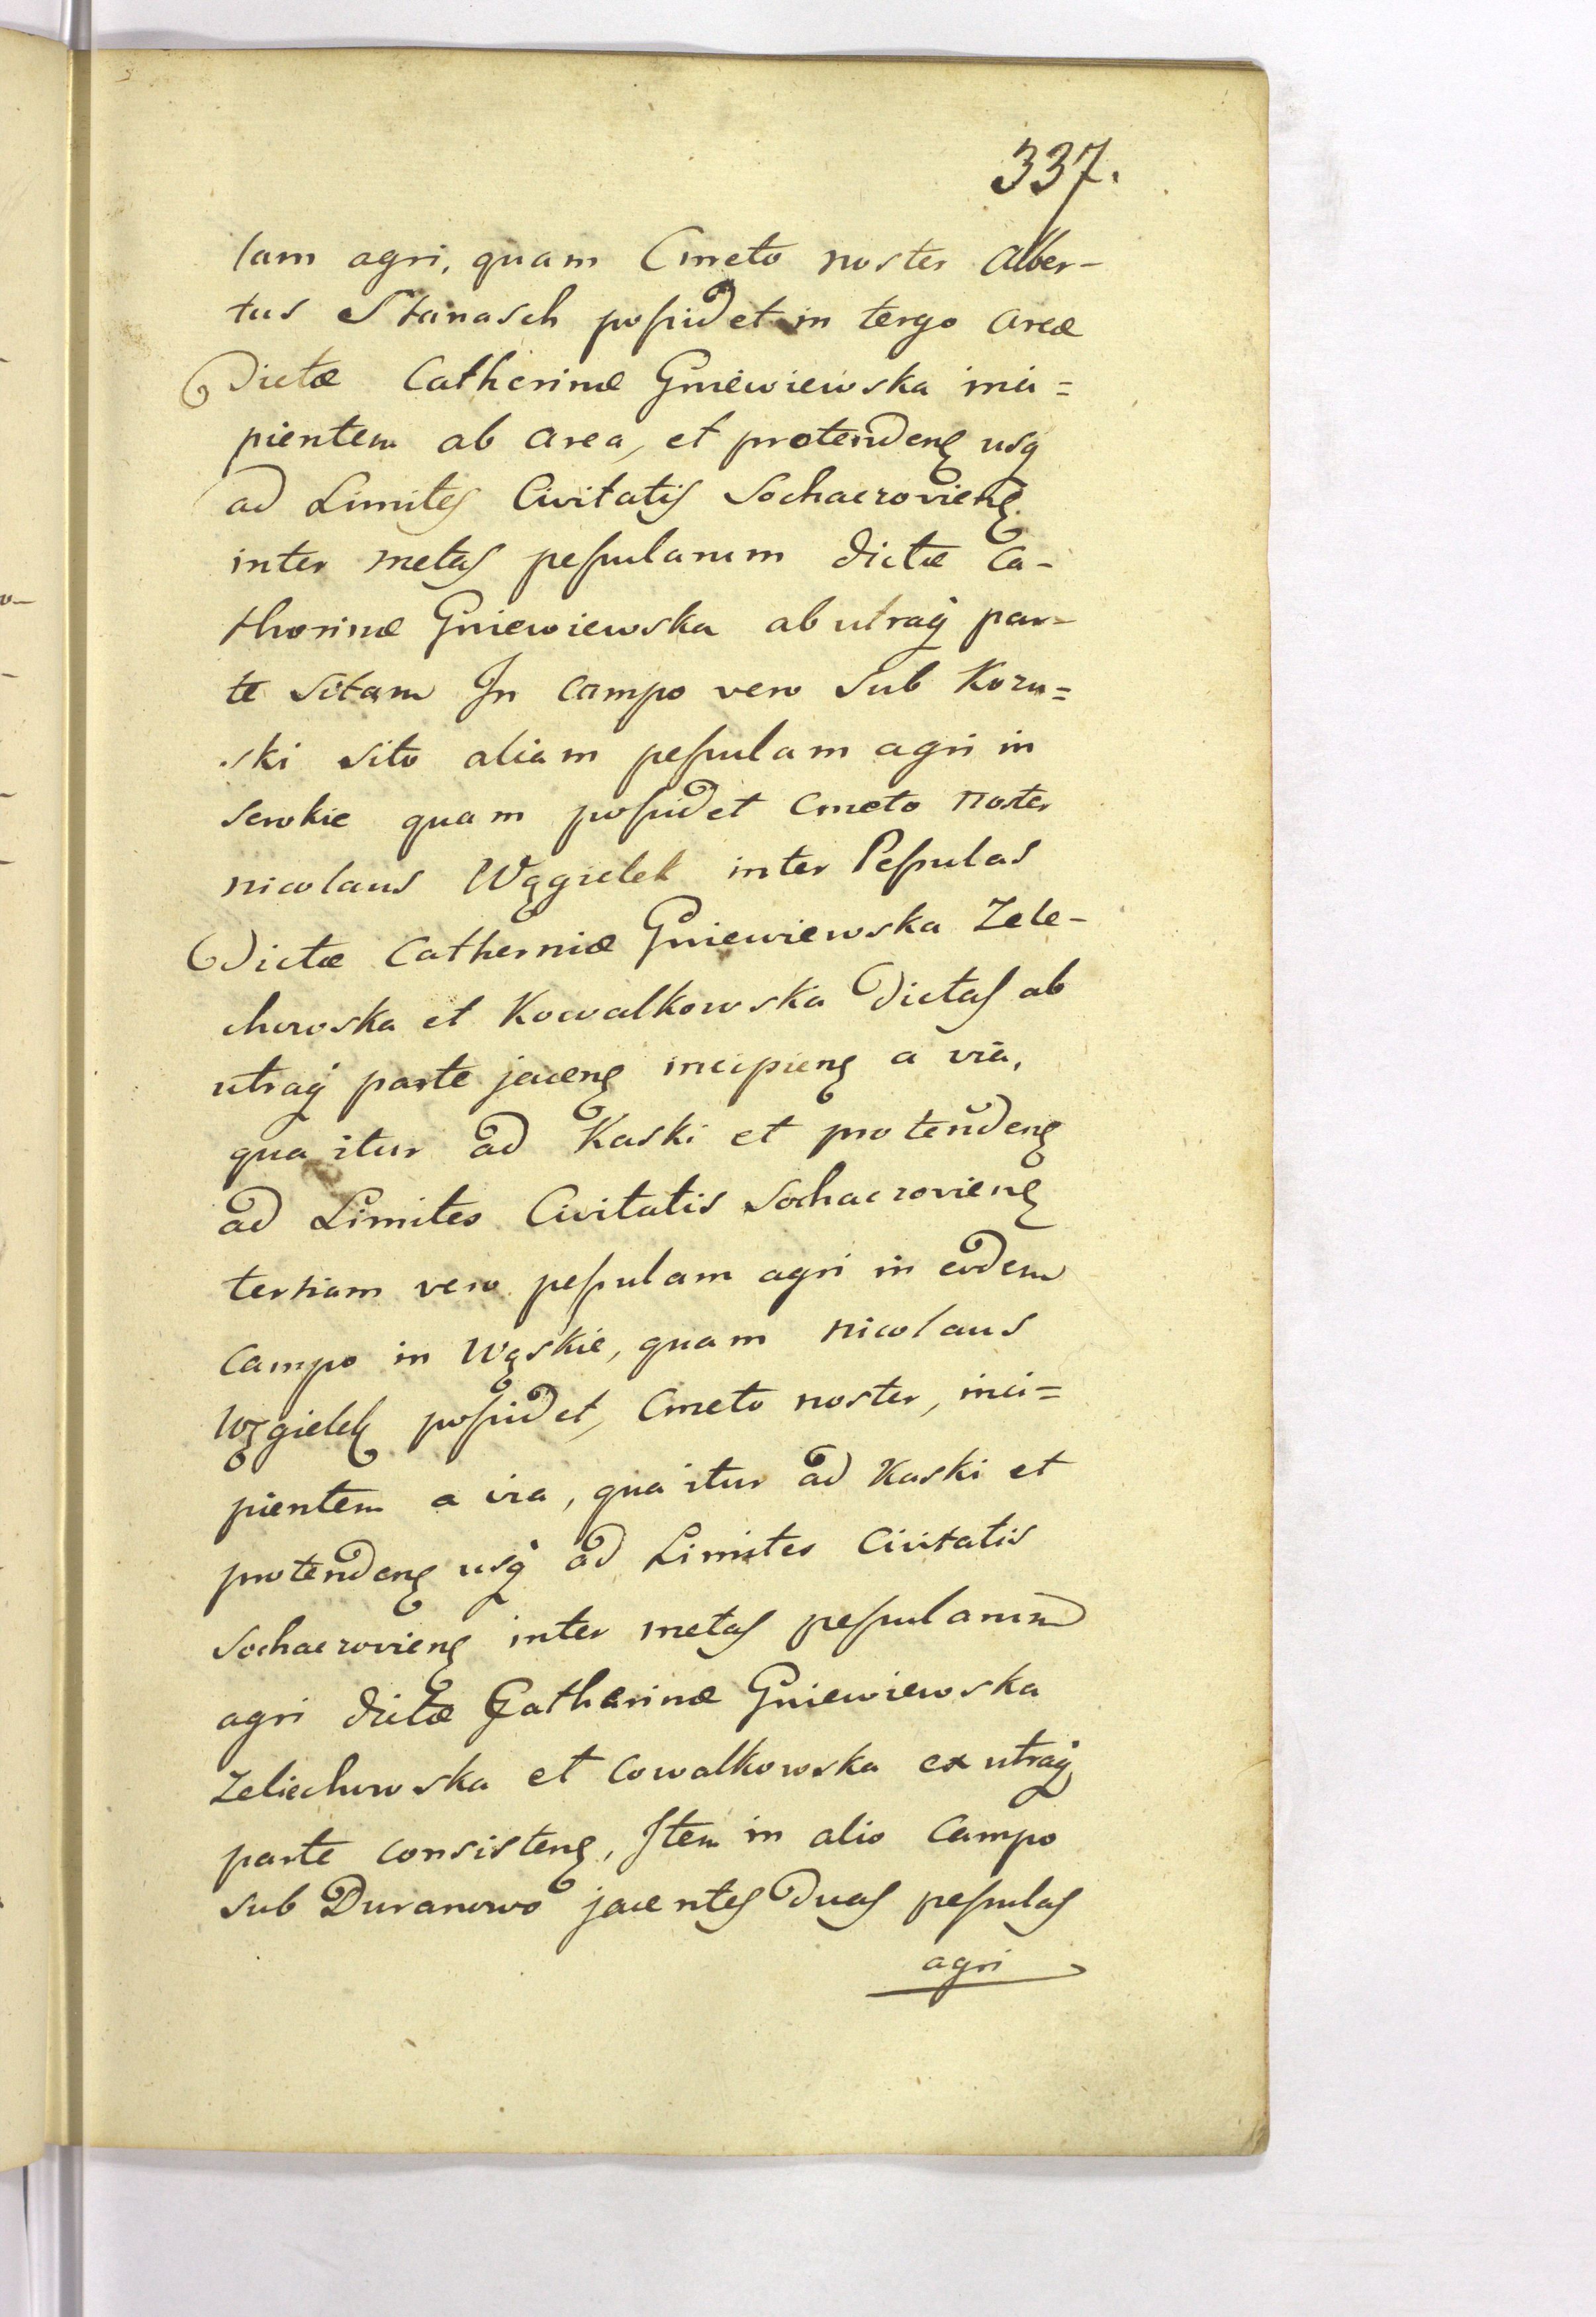 337.
lam agri, quam Cmeto noster Alber-
tus Stanasch possidet in tergo areæ
Dictæ Catherinæ Gniewiewska inci=
pientem ab area, et protendenꝭ usq
ad Limites Civitatis Sochaczovienꝭ.
inter metas pessularum dictæ Ca-
therinæ Gniewiewska ab utraq́ par-
te sitam In campo vero sub Kozu=
ski sito aliam pessulam agri in
serokie quam possidet Cmeto noster
nicolaus Wągielek inter Pessulas
Dictæ Catherniæ Gniewiewska Zele-
chowska et Kowalkowska Dictas ab
utraq́ parte jacenꝭ incipienꝭ a via,
qua itur ad Kaski et protendenꝭ
ad Limites Civitatis Sochaczovienꝭ
tertiam vero pessulam agri in eodem
Campo in Wąskie, quam nicolaus
Wągielek possidet, Cmeto noster, inci=
pientem a via, qua itur ad Kaski et
protendenꝭ usq́ ad Limites Civitatis
Sochaczovienꝭ inter metas pessularum
agri dictæ Catharinæ Gniewiewska
Zeliechowska et Cowalkowska ex utraq́
parte consistenꝭ, Item in alio Campo
sub Duranowo jacentes Duas pessulas
agri